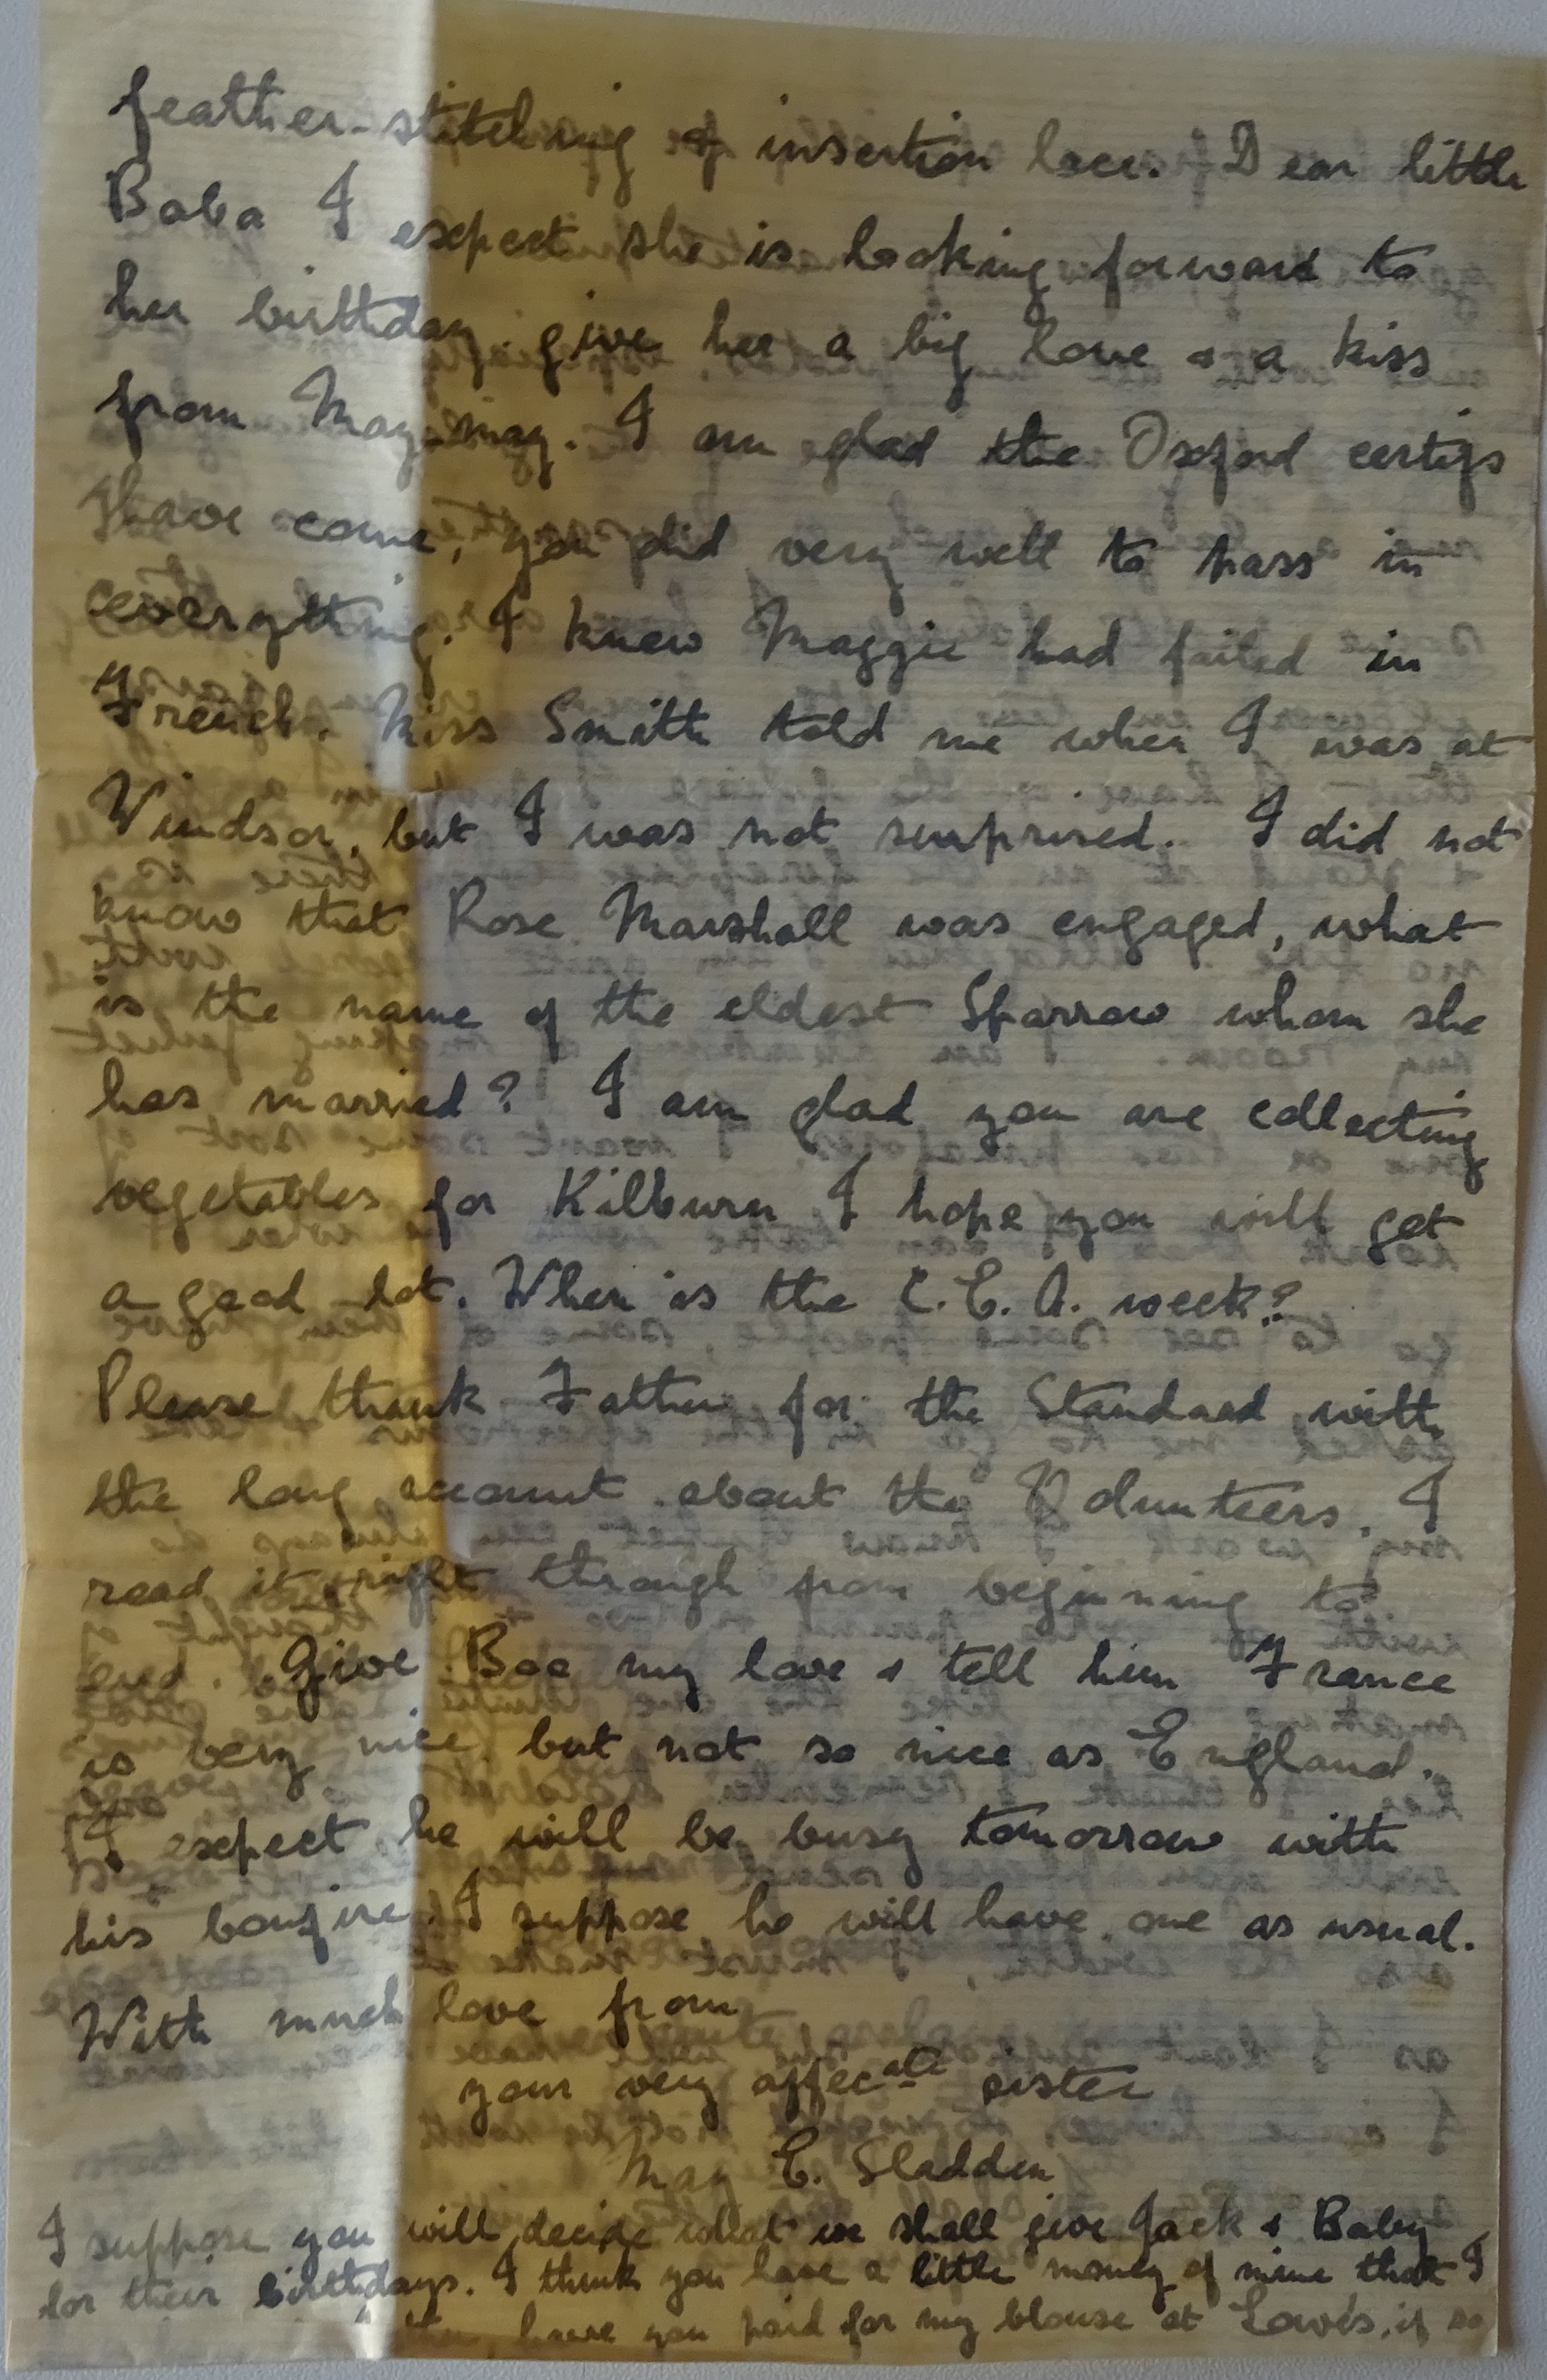 feather-stitching & insertion lace. Dear little
Baba I expect she is looking forward to
her birthday. give her a big love & a kiss
from May-may. I am glad the Oxford certifs
have come, you did very well to pass in
everything. I knew Maggie had failed in
French. Miss Smith told me when I was at
Windsor, but I was not surprised. I did not
know that Rose Marshall was engaged, what
is the name of the eldest Sparrow whom she
has married? I am glad you are collecting
vegetables for Kilburn I hope you will get
a good lot. When is the C.E.A. week?
Please thank Father for the Standard with
the long account about the Volunteers. I
read it right through from beginning to
end. Give Boo my love & tell him France
is very nice but not so nice as England.
I expect he will be busy tomorrow with
his bonfire. I suppose he will have one as usual.
With much love from
your very affecate sister
May E. Sladden
I suppose you will decide what we shall give Jack & Baby
for their birthdays. I think you have a little money of mine that I
have you paid for my blouse at Lowe's, if so